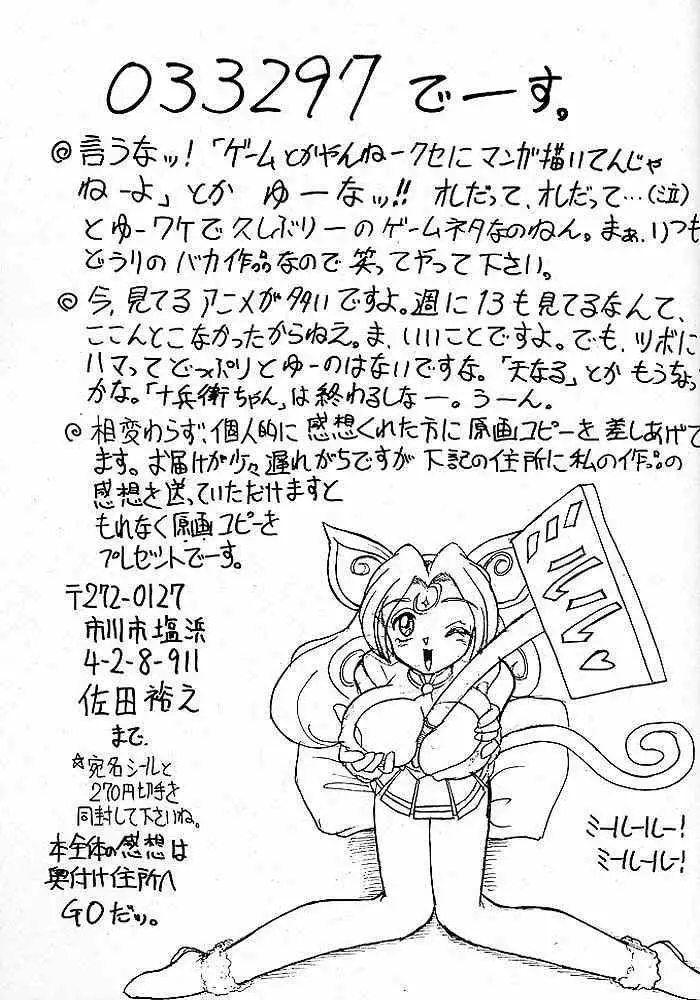 033297 でーす。
◎言うなッ!「ゲームとかやんねークセにマンガ描いてんじゃ
ねーよ」とか ゆーなッ!! オレだって、オレだって…(泣)
とゆーワケで久しぶりーのゲームネタなのねん。まぁ、いつも
どうりのバカ作品なので笑ってやって下さい。
◎今、見てるアニメが多いですよ。週に13も見てるなんて、
ここんとこなかったからねえ。ま、いいことですよ。でも、ツボに
ハマってどっぷりとゆーのはないですな。「天なる」とかもうちょ
かな。「十兵衛ちゃん」は終わるしなー。うーん。
◎相変わらず、個人的に感想くれた方に原画コピーを差しあげて
ます。お届けが少々遅れがちですが下記の住所に私の作品の
感想を送っていただけますと
もれなく原画コピーを
プレゼットでーす。
〒272-0127
市川市塩浜
4-2-8-911
佐田裕之
まで
☆宛名シールと
270円切手を
同封して下さいね。
本全体の感想は
奥付け住所へ
GOだッ。
ドルルル♡
ミールールー!
ミールルル!